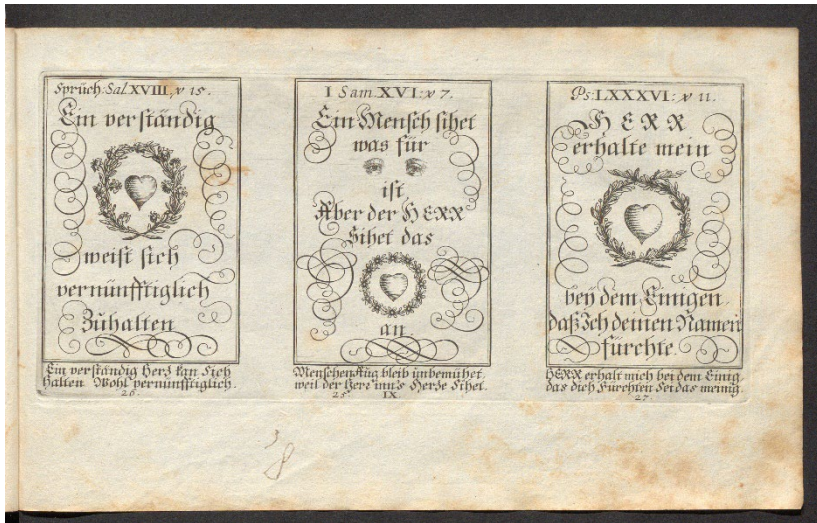 Sprüch: Sal. XVIII, v 15.
Ein verständig
weist sich
vernünfftiglich
Zuhalten
Ein verständig Herz kan sich
halten Wohl vernünfftiglich.
26.
I Sam. XVI: v 7.
Ein Mensch sihet
was für
ist
Aber der HERR
Sihet das
an.
Menschen Aug bleib unbemühet
weil der Herr inn's Herze Sihet.
25 IX.
Ps: LXXXVI: v 11.
HERR
erhalte mein
beÿ dem Einigen,
daß Ich deinen Namen
fürchte.
HERR erhalt mich bei dem Einig
das dich Fürchten Sei das meinig
27.